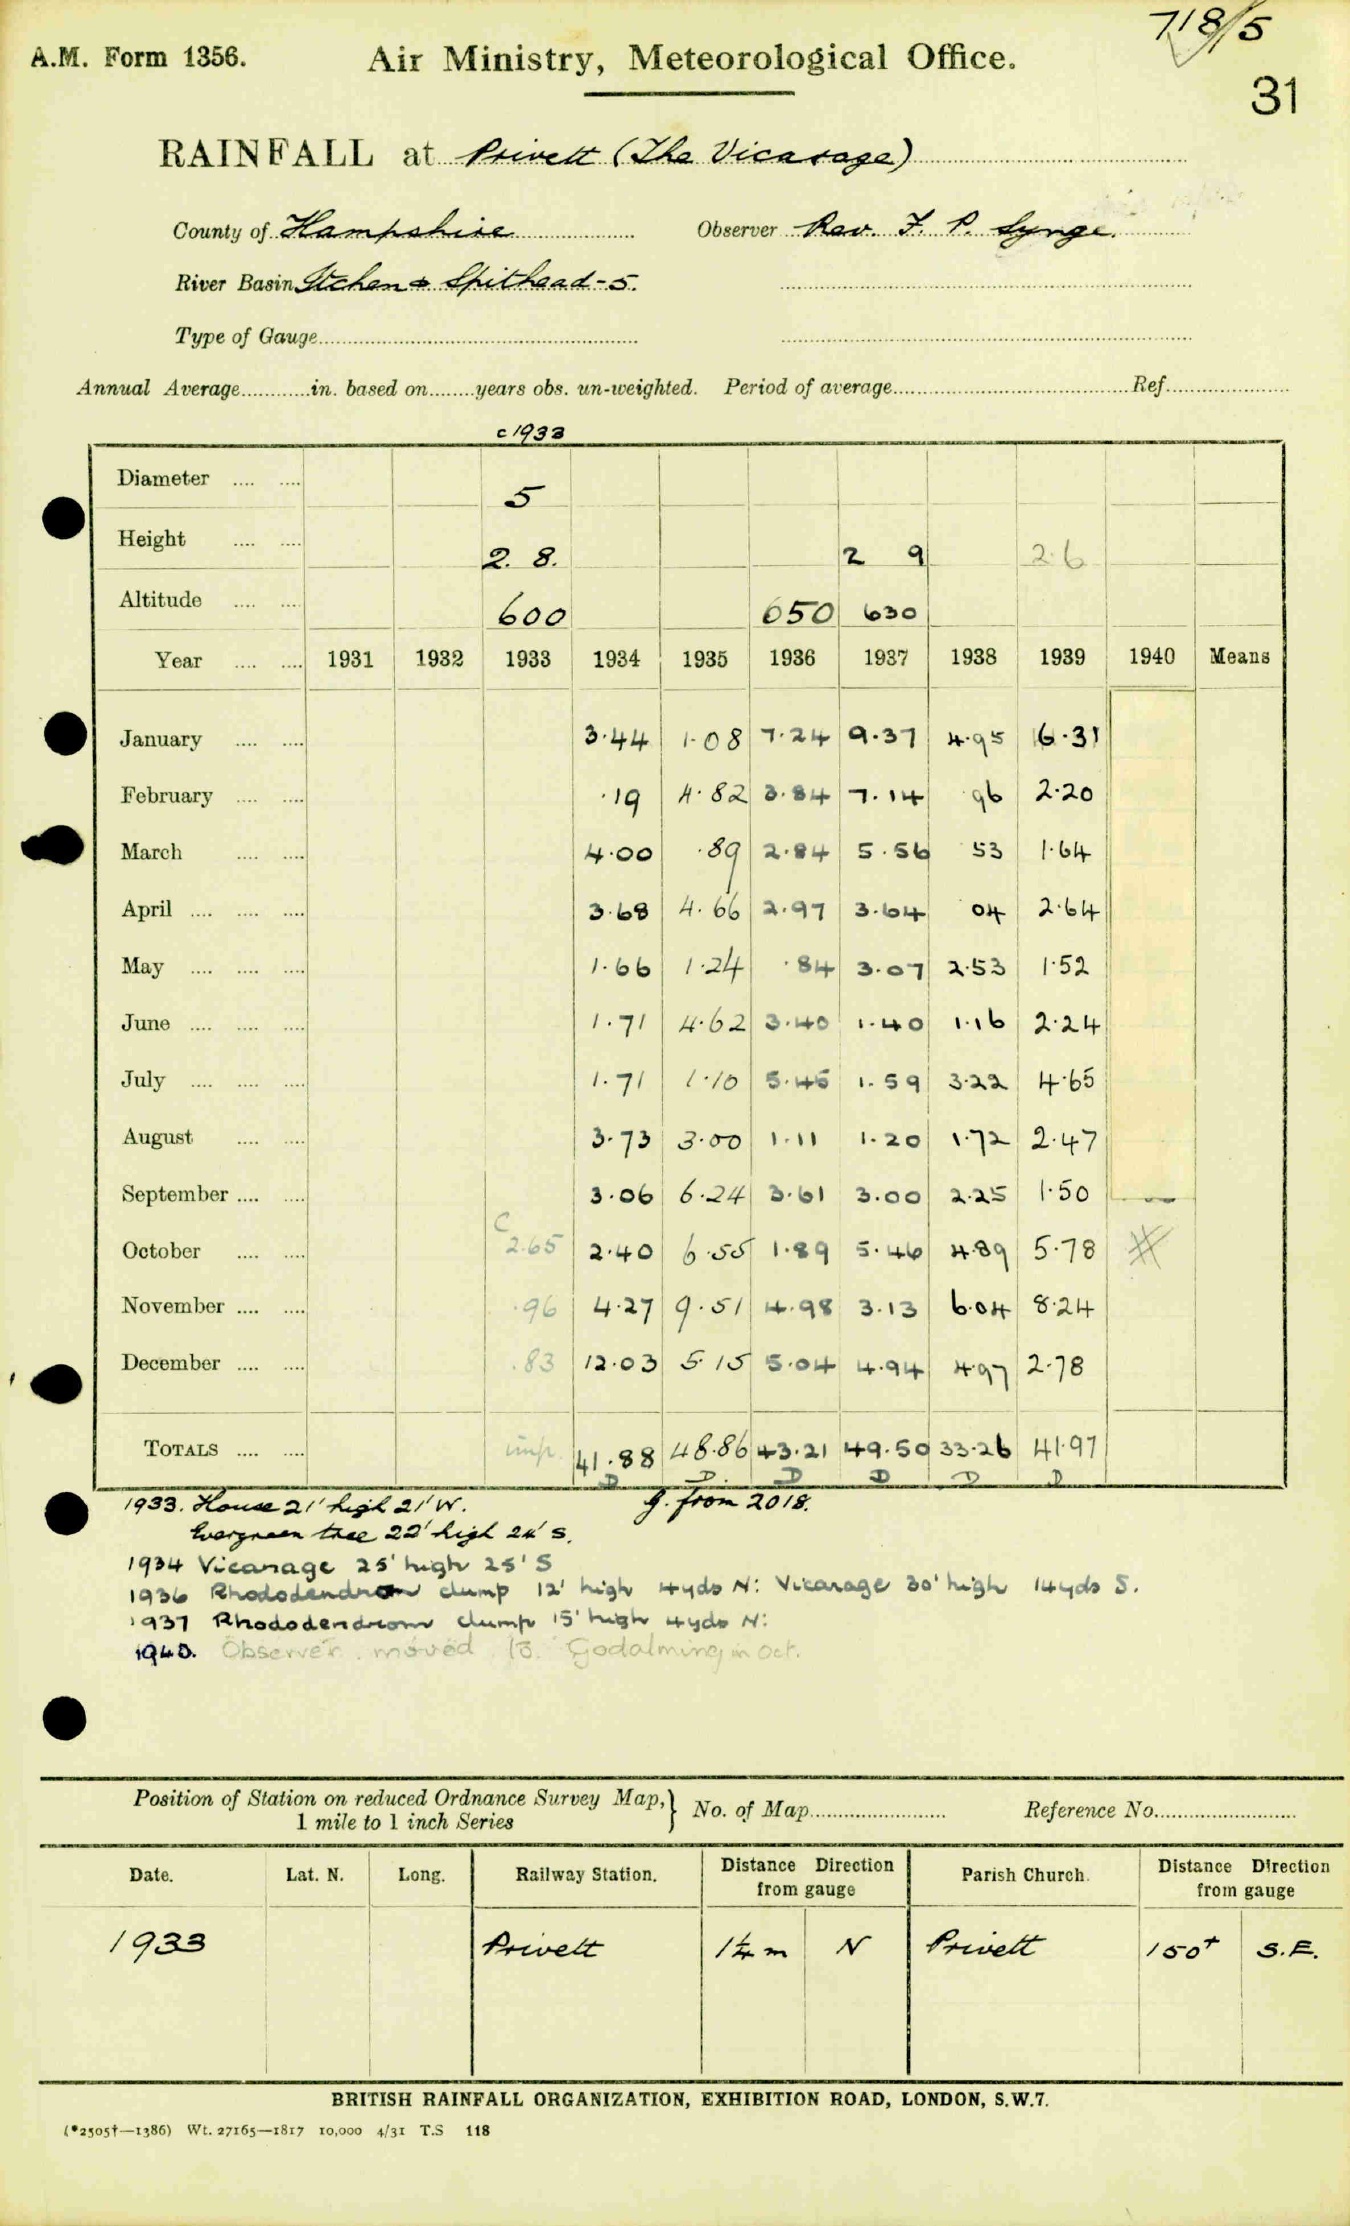 718/5
A.M. Form 1356. Air Ministry, Meteorological Office.
31
RAINFALL at Privett (The Vicarage)
County of Hampshire Observer Rev. F. P. Synge.
River Basin Itchen & Spithead-5.
Type of Gauge
Annual Average in. based on years obs. un-weighted. Period of average Ref.
c 1933
Diameter 5
Height 2. 8. 2 9 2.6
Altitude 600 650 630
Year 1931 1932 1933 1934 1935 1936 1937 1938 1939 1940 Means
January 3.44 1.08 7.24 9.37 4.95 6.31
February .19 4.82 3.84 7.14 96 2.20
March 4.00 .89 2.84 5.56 53 1.64
April 3.68 4.66 2.97 3.64 04 2.64
May 1.66 1.24 .84 3.07 2.53 1.52
June 1.71 4.62 3.40 1.40 1.16 2.24
July 1.71 1.10 5.45 1.59 3.22 4.65
August 3.73 3.00 1.11 1.20 1.72 2.47
September 3.06 6.24 3.61 3.00 2.25 1.50
C
October 2.65 2.40 6.55 1.89 5.46 4.89 5.78
November .96 4.27 9.51 4.98 3.13 6.04 8.24
December .83 12.03 5.15 5.04 4.94 4.97 2.78
TOTALS imp. 41.88 48.86 43.21 49.50 33.26 41.97
D D D D D D
1933. House 21' high 21' W. g. from 2018.
Evergreen tree 22' high 24' S.
1934 Vicarage 25' high 25' S
1936 Rhododendron clump 12' high 4yds N: Vicarage 30' high 14yds S.
1937 Rhododendrom clump 15' high 4yds N:
1940. Observer moved to Godalming in Oct.
Position of Station on reduced Ordnance Survey Map, 1 mile to 1 inch Series } No. of Map Reference No.
Date. Lat. N. Long. Railway Station. Distance Direction from gauge Parish Church. Distance Direction from gauge
1933 Privett 1¼ m N Privett 150+ S.E.
BRITISH RAINFALL ORGANIZATION, EXHIBITION ROAD, LONDON, S.W.7.
(*2505†—1386) Wt. 27165—1817 10,000 4/31 T.S 118